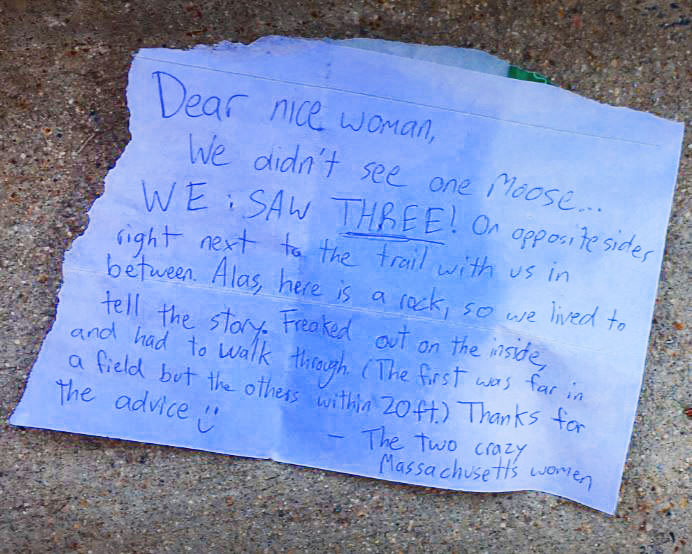 Dear nice woman,
We didn't see one Moose...
WE SAW THREE! On opposite sides
right next to the trail with us in
between. Alas, here is a rock, so we lived to
tell the story. Freaked out on the inside,
and had to walk through. (The first was far in
a field but the others within 20ft.) Thanks for
the advice :)
- The two crazy
Massachusetts women